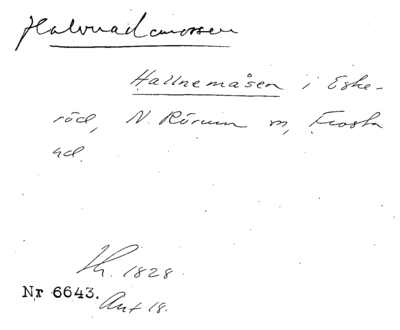 Halvnadamossen
Hallnemåsen i Eske-
röd, N. Rörum sn, Frosta
hd.
Th. 1828.
Nr 6643.
Ant 18.